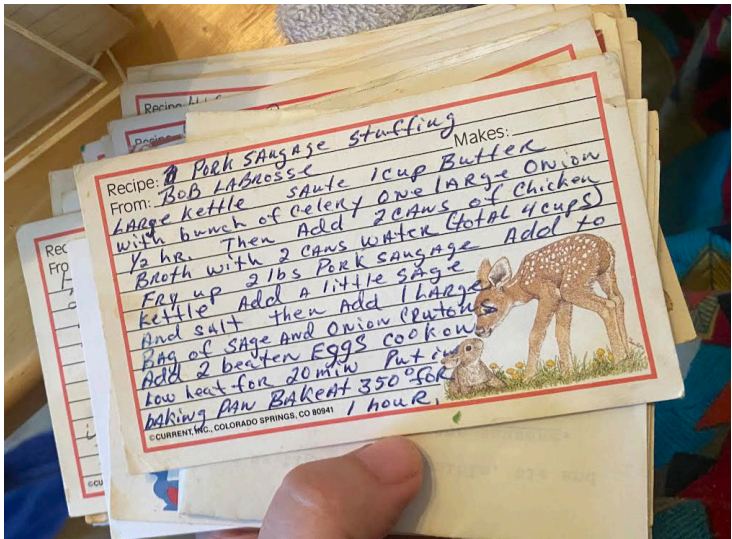 Recipe:
Recipe:
Recipe: Pork SAUSAGE Stuffing
From: BOB LABROSSE Makes:
LARge Kettle SAute 1 cup Butter
with bunch of Celery ONe lARge ONion
1/2 hR. Then Add 2 CANS of Chicken
BRoth with 2 CANS WAteR (totAl 4 cups)
FRy up 2 lbs PoRk SAUSAge Add to
kettle Add A little SAge
And SAlt then Add 1 LARge
BAg of SAge ANd ONion CRutoNs
Add 2 beAten EGGS cook on
low heAt for 20 min Put in
bAkiNg PAN BAKeAt 350° foR
1 houR.
©CURRENT, INC., COLORADO SPRINGS, CO 80941
Rec
Fro
©CU